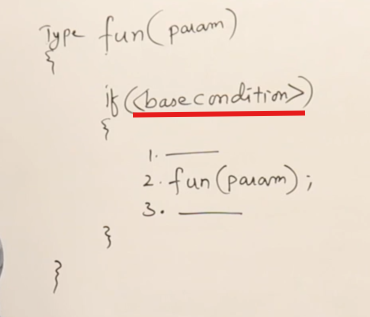 Type fun(param)
{
if(<base condition>)
{
1. ___
2. fun(param);
3. ___
}
}